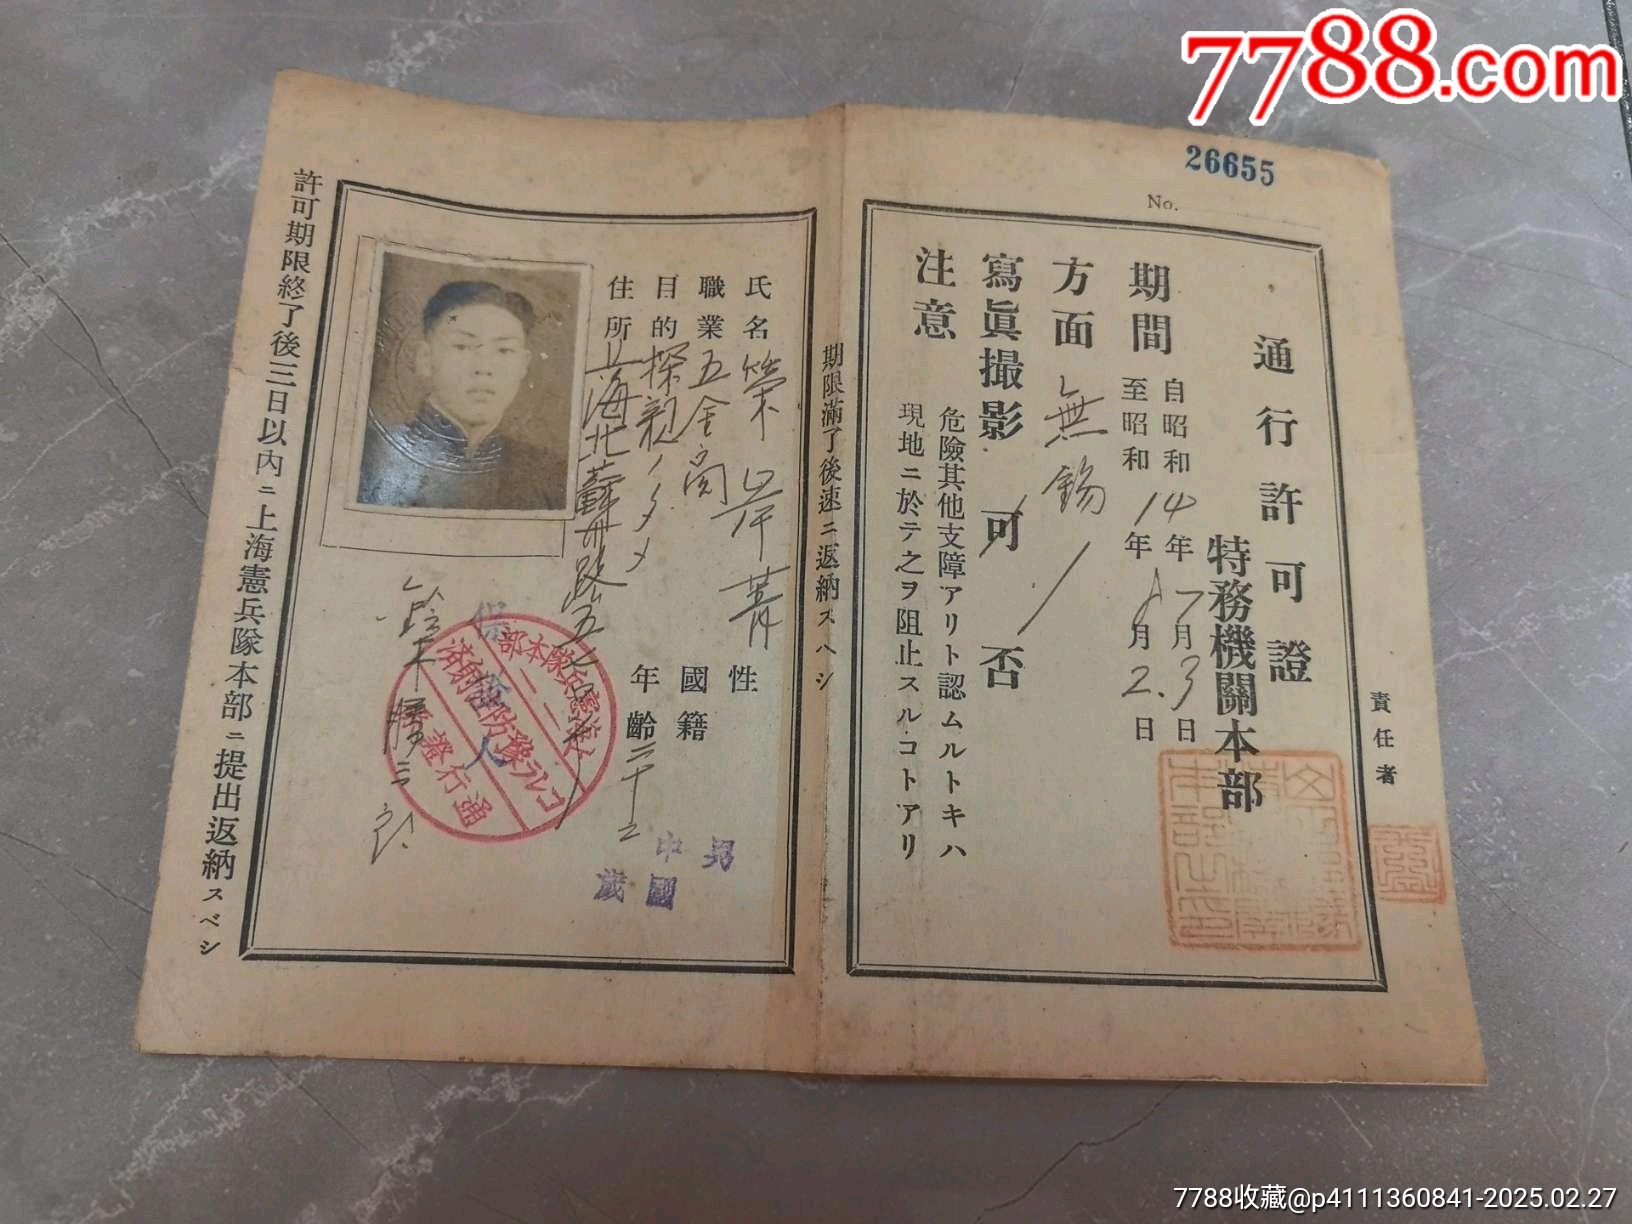 7788.com
26655
No.
通行許可證
特務機關本部
期間
自昭和14年7月3日
至昭和14年8月2日
方面 無錫
寫眞撮影 可 否
注意
危險其他支障アリト認ムルトキハ
現地ニ於テ之ヲ阻止スルコトアリ
責任者
期限滿了後速ニ返納スハシ
氏名 榮
性 男
職業 五金商
國籍 中國
目的 探親ノタメ
年齡 二十二歲
住所 上海北蘇州路五
保證人
上海憲兵隊本部
コレラ豫防注射濟
通行證
許可期限終了後三日以內ニ上海憲兵隊本部ニ提出返納スベシ
7788收藏@p4111360841-2025.02.27